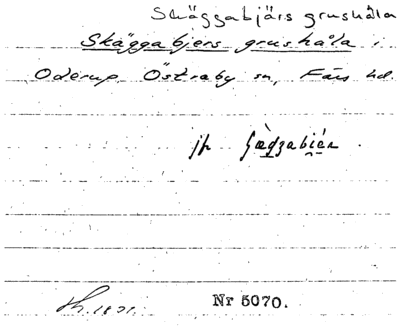 Skäggabjärs grushåla
Skäggabjers grushåla i
Oderup, Östraby sn, Färs hd.
jfr
Nr 5070.